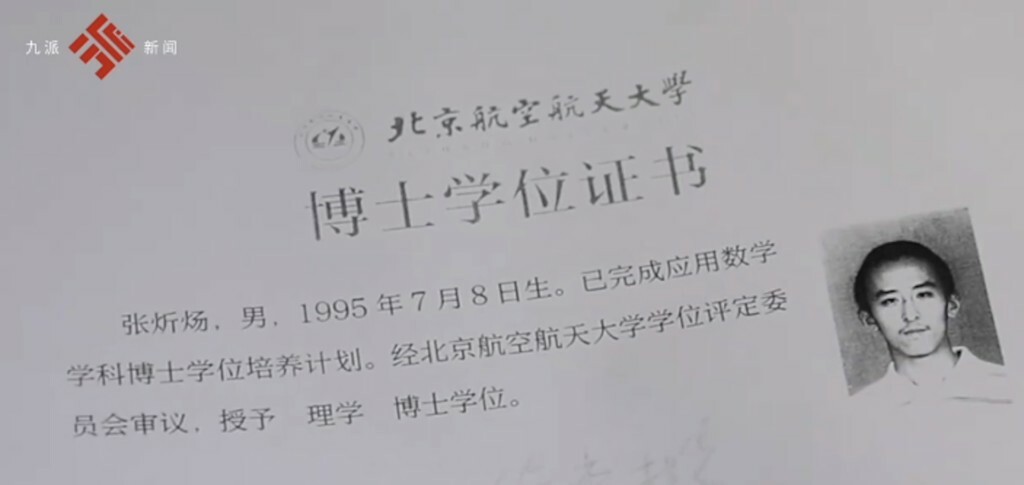 九派 新闻
北京航空航天大學
博士学位证书
张炘炀，男，1995年7月8日生。已完成应用数学
学科博士学位培养计划。经北京航空航天大学学位评定委
员会审议，授予 理学 博士学位。